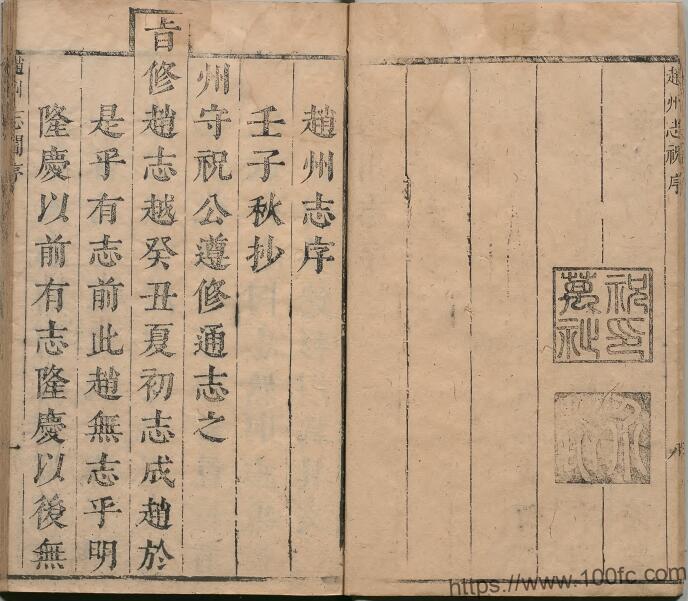 趙州志祝序
祝萬祉印
趙州志序
壬子秋抄
州守祝公遵修通志之
旨修趙志越癸丑夏初志成趙於
是乎有志前此趙無志乎明
隆慶以前有志隆慶以後無
趙州志 序
一
https://www.100fc.com